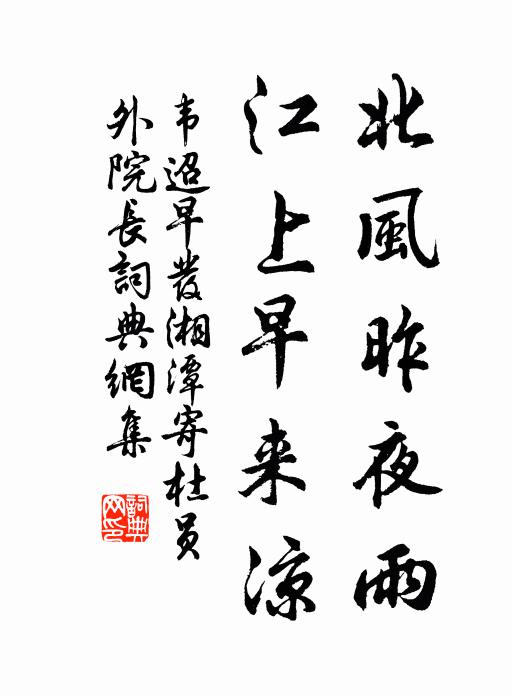 北風昨夜雨
江上早来涼
韦迢早發湘潭寄杜员
外院長詞典網集
詞典
网印